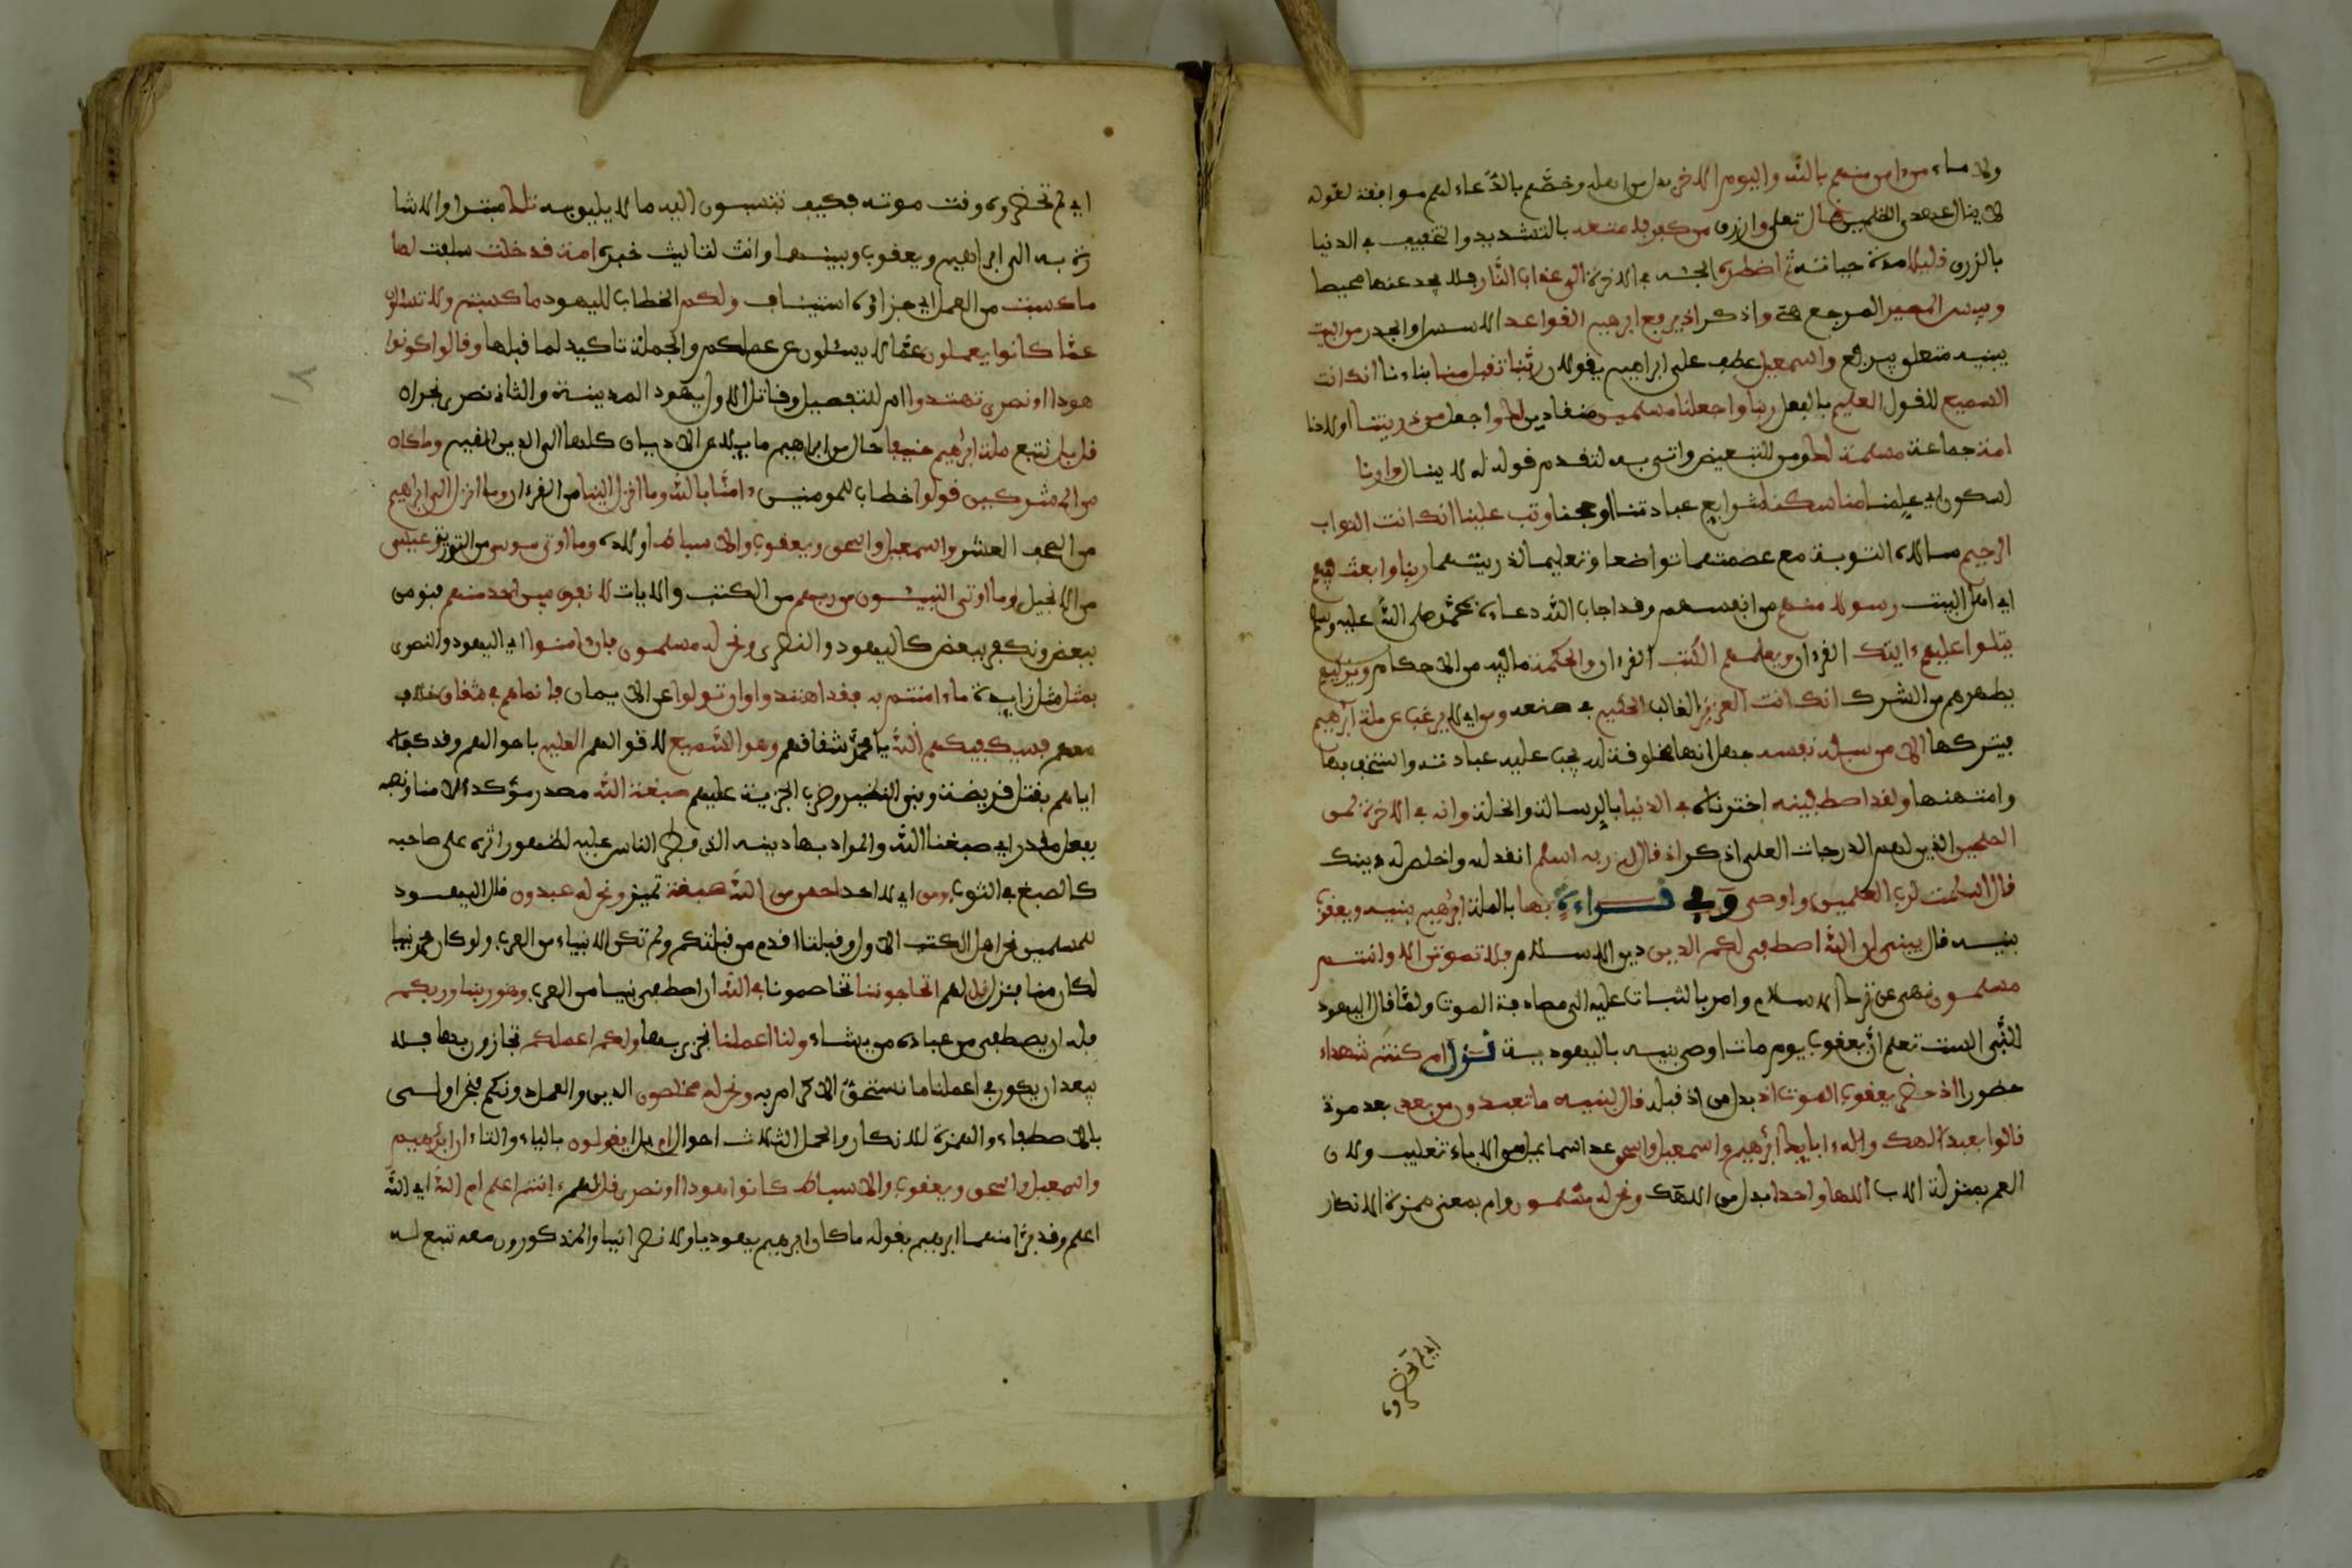 ولا ماء من ءامن منهم بالله واليوم الاخر بدل من اهله وخصهم بالدعاء لهم موافقة لقوله
لا ينال عهدي الظلمين قال تعلى وارزق من كفر فامتعه بالتشديد والتخفيف في الدنيا
بالرزق قليلا مدة حياته ثم اضطره الجئه في الاخرة الى عذاب النار فلا يجد عنها محيصا
وبيس المصير المرجع هي واذكر اذ يرفع ابرهيم القواعد الاسس او الجدر من البيت
يبنيه متعلق بيرفع واسمعيل عطف على ابراهيم يقولان ربنا تقبل منا بناءنا انك انت
السميع للقول العليم بالفعل ربنا واجعلنا مسلمين منقادين لك واجعل من ذريتنا اولادنا
امة جماعة مسلمة لك ومن للتبعيض واتى به لتقدم قوله له لا ينال وارنا
لسكون اي علمنا مناسكنا شرايع عبادتنا او حجنا وتب علينا انك انت التواب
الرحيم سالاه التوبة مع عصمتهما تواضعا وتعليما لذريتهما ربنا وابعث فيهم
اي اهل البيت رسولا منهم من انفسهم وقد اجاب الله دعاءه بمحمد صلى الله عليه وسلم
يتلوا عليهم ءايتك القرءان ويعلمهم الكتب القرءان والحكمة ما فيه من الاحكام ويزكيهم
يطهرهم من الشرك انك انت العزيز الغالب الحكيم في صنعه ومن اي لا يرغب عن ملة ابرهيم
فيتركها الا من سفه نفسه جهل انها مخلوقة لله يجب عليه عبادته او استخف بها
وامتهنها ولقد اصطفينه اخترناه في الدنيا بالرسالة والخلة وانه في الاخرة لمن
الصلحين الذين لهم الدرجات العلى اذكر اذ قال له ربه اسلم انقد لله واخلص له دينك
قال اسلمت لرب العلمين واوصى وفي قراءة بها بالملة ابرهيم بنيه ويعقوب
بنيه قال يبني ان الله اصطفى لكم الدين دين الاسلام فلا تموتن الا وانتم
مسلمون نهى عن ترك الاسلام وامر بالثبات عليه الى مصادفة الموت ولما قال اليهود
للنبي الست تعلم ان يعقوب يوم مات اوصى بنيه باليهودية نزل ام كنتم شهداء
حضورا اذ حضر يعقوب الموت اذ بدل من اذ قبله قال لبنيه ما تعبدون من بعدي بعد موتي
قالوا نعبد الهك واله ءابايك ابرهيم واسمعيل واسحق عد اسماعيل من الاباء تغليب ولان
العم بمنزلة الاب الها واحدا بدل من الاهك ونحن له مسلمون وام بمعنى همزة الانكار
اي لم تحضروه
اي لم تحضروه وقت موته فكيف تنسبون اليه ما لا يليق به تلك مبتدا والاشا
رة به الى ابراهيم ويعقوب وبنيهما وانث لتانيث خبره امة قد خلت سلفت لها
ما كسبت من العمل اي جزاؤه استيناف ولكم الخطاب لليهود ما كسبتم ولا تسئلون
عما كانوا يعملون عما لا يسئلون عن عملكم والجملة تاكيد لما قبلها وقالوا كونوا
هودا او نصرى تهتدوا او للتفصيل وقائل الاول يهود المدينة والثاني نصرى نجران
قل بل نتبع ملة ابرهيم حنيفا حال من ابراهيم مايلا عن الاديان كلها الى الدين القيم وما كان
من المشركين قولوا خطاب للمومنين ءامنا بالله وما انزل الينا من القرءان وما انزل الى ابراهيم
من الصحف العشر واسمعيل واسحق ويعقوب والاسباط اولاده وما اوتي موسى من التورية وعيسى
من الانجيل وما اوتي النبيئون من ربهم من الكتب والايات لا نفرق بين احد منهم فنومن
ببعض ونكفر ببعض كاليهود والنصرى ونحن له مسلمون فان ءامنوا اي اليهود والنصرى
بمثل مثل زايدة ما ءامنتم به فقد اهتدوا وان تولوا عن الايمان فانما هم في شقاق خلاف
معهم فسيكفيكهم الله يا محمد شقاقهم وهو السميع لاقوالهم العليم باحوالهم وقد كفاه
اياهم بقتل قريضة ونفي النضير وضرب الجزية عليهم صبغة الله مصدر مؤكد لامنا ونصبه
بفعل مقدر اي صبغنا الله والمراد بها دينه الذي فطر الناس عليه لظهور اثره على صاحبه
كالصبغ في الثوب ومن اي لا احد احسن من الله صبغة تمييز ونحن له عبدون قال اليهود
للمسلمين نحن اهل الكتب الاول وقبلتنا اقدم من قبلتكم ولم تكن الانبياء من العرب ولو كان محمد نبيا
لكان منا فنزل قل لهم اتحاجوننا تخاصموننا في الله ان اصطفى نبيا من العرب وهو ربنا وربكم
فله ان يصطفي من عباده من يشاء ولنا اعملنا نجزى بها ولكم اعملكم تجازون بها فلا
يبعد ان يكون في اعملنا ما نستحق الاكرام به ونحن له مخلصون الدين والعمل دونكم فنحن اولى
بالاصطفاء والهمزة للانكار والجمل الثلاث احوال ام بل ايقولون بالياء والتاء ان ابرهيم
واسمعيل واسحق ويعقوب والاسباط كانوا هودا او نصرى قل لهم ءانتم اعلم ام الله اي الله
اعلم وقد برا منهما ابرهيم بقوله ما كان ابرهيم يهوديا ولا نصرانيا والمذكورون معه تبع له
١٨